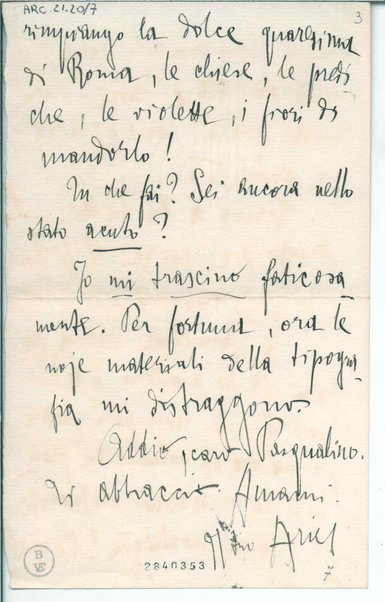 ARC.21.20/7
3
rimpiango la dolce quaresima
di Roma, le chiese, le predi
che, le violette, i fiori di
mandorlo!
Tu che fai? Sei ancora nello
stato acuto?
Io mi trascino faticosa
mente. Per fortuna, ora le
noje materiali della tipogra
fia mi distraggono.
Addio, caro Pasqualino.
Ti abbraccio. Amami.
Il tuo Ariel
BVE
2840353
7